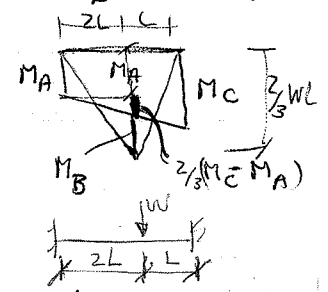 2L L
M_A M_A M_C
2/3 WL
M_B 2/3(M_C - M_A)
W
2L L